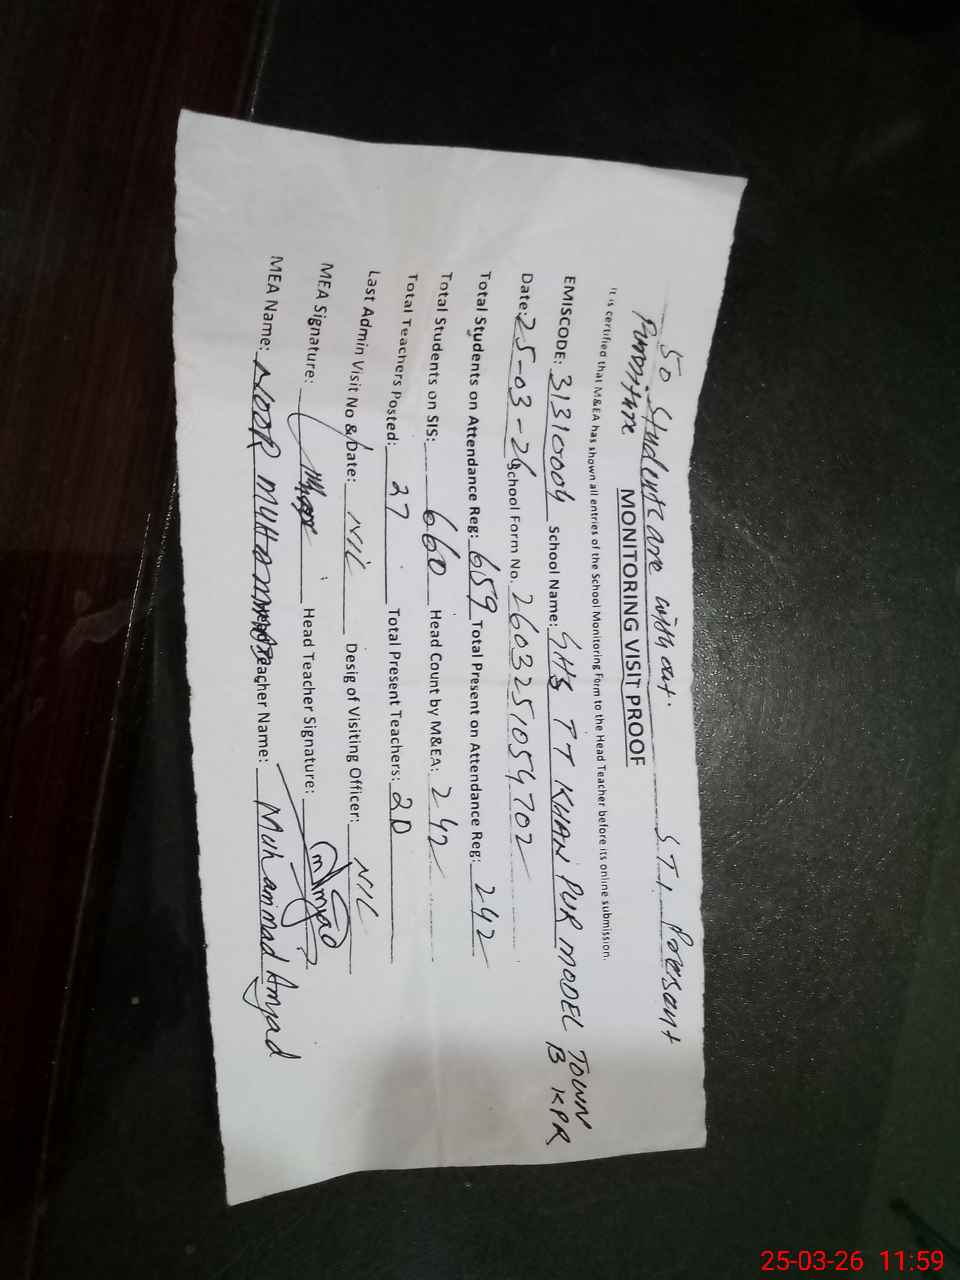 50 Students are with out. STI Present
Furniture
MONITORING VISIT PROOF
It is certified that M&EA has shown all entries of the School Monitoring Form to the Head Teacher before its online submission.
EMISCODE: 31310004 School Name: GHS TT KHAN PUR MODEL TOWN
B KPR
Date: 25-03-26 School Form No. 2603251059702
Total Students on Attendance Reg: 659 Total Present on Attendance Reg: 242
Total Students on SIS: 660 Head Count by M&EA: 242
Total Teachers Posted: 27 Total Present Teachers: 20
Last Admin Visit No & Date: NIL Desig of Visiting Officer: NIL
MEA Signature: Head Teacher Signature: MAmjad
MEA Name: NOOR MUHAMMAD Teacher Name: Muhammad Amjad
25-03-26 11:59